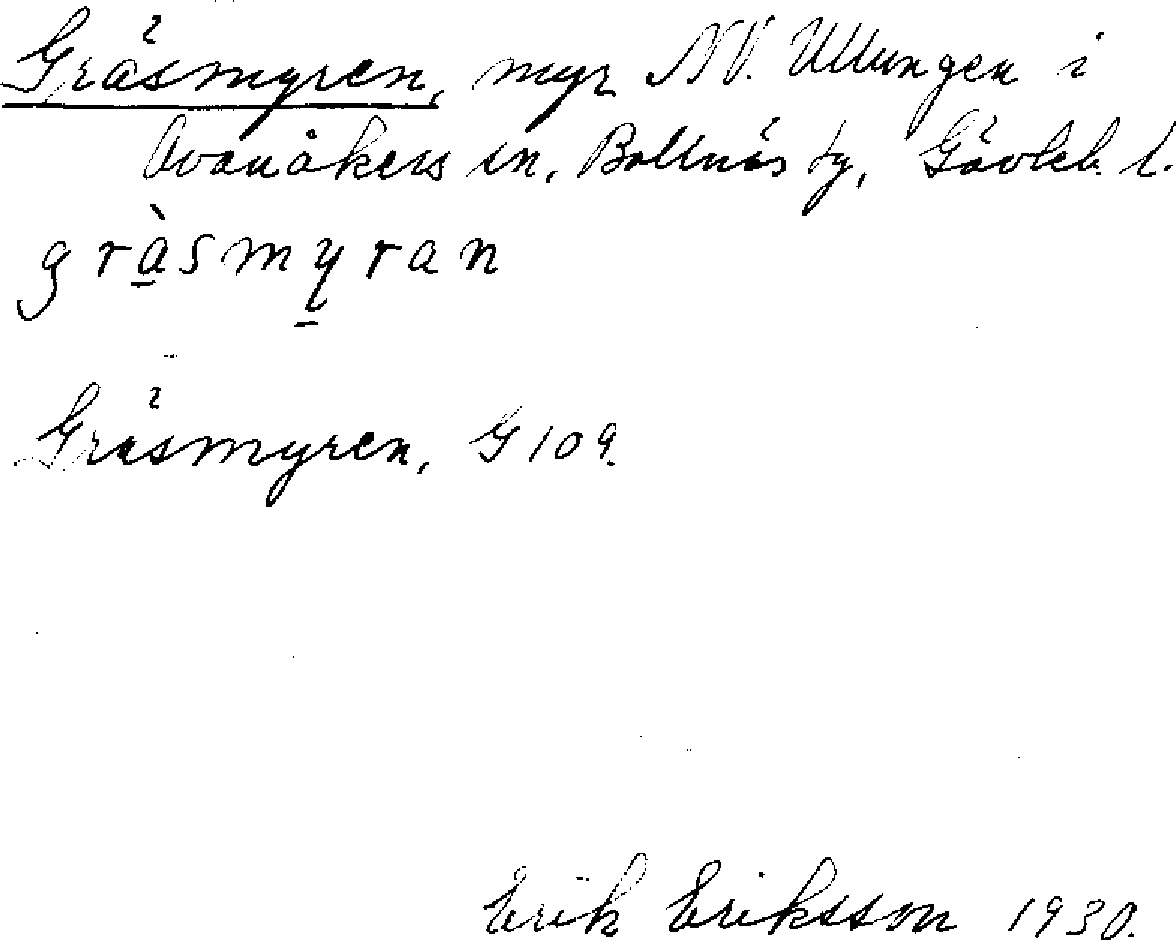 Gräsmyren, myr NV. Ullungen i
Ovanåkers sn, Bollnäs tg, Gävleb. l.
gràsmyran
Gräsmyren, G 109.
Erik Eriksson 1930.